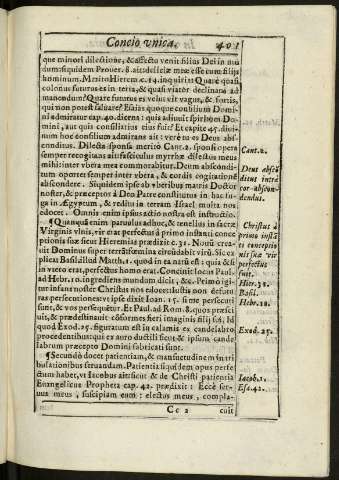 Concio vnica.
401
que minori dilectione, & affectu venit filius Dei in mũ
dum: siquidem Prouer. 8. ait: deliciæ meæ esse cum filijs
hominum. Merito Hierem c. 14. inquirit: Quare quasi
colonus futurus es in terra, & quasi viator declinans ad
manendum? Quare futurus es velut vir vagus, & fortis,
qui non potest saluare? Esaias quoque consilium Domi
ni admiratur cap. 40. dicens: quis adiuuit spiritum Do
mini, aut quis consiliarius eius fuit? Et capite 45. diuinum
hoc consilium admirans ait: verè tu es Deus abs-
conditus. Dilecta sponsa meritò Cant. 2. sponsi opera
semper recogitans ait: fasciculus myrrhæ dilectus meus
mihi: inter vbera mea commorabitur. Deum absconditum
oportet semper inter vbera, & cordis cogitationes
abscondere. Siquidem ipse ab vberibus matris Doctor
noster, & præceptor à Deo Patre constitutus in hac fu
ga in Ægyptum, & reditu in terram Israel multa nos
docet. Omnis enim ipsius actio nostra est instructio.
¶ Quamquã enim paruulus adhuc, & tenellus in sacræ
Virginis vlnis, vir erat perfectus à primo instanti conce
ptionis suæ sicut Hieremias prædixit c. 31. Nouũ crea-
uit Dominus super terrã: fœmina circũdabit virũ. Sic ex
plicat Basil. illud Matth. 1. quod in ea natũ est: quia & si
in vtero erat, perfectus homo erat. Concinit locus Paul.
ad Hebr. 10. ingrediens mundum dicit, &c. Primò igi
tur infans noster Christus nos edocet: iustis non defutu
ras persecutiones: vt ipse dixit Ioan. 15. si me persecuti
sunt, & vos persequẽtur. Et Paul. ad Rom. 8. quos præsci
uit, & prædestinauit cõformes fieri imaginis filij sui. Id
quod Exod. 25. figuratum est in calamis ex candelabro
procedentibus: qui ex auro ductili sicut & ipsum cande
labrum præcepto Domini fabricati sunt.
¶ Secundò docet patientiam, & mansuetudinem in tri
bulationibus seruandam. Patientia siquidem opus perfe
ctum habet, vt Iacobus ait: sicut & de Christi patientia
Euangelicus Propheta cap. 42. prædixit: Eccè ser-
uus meus, suscipiam eum: electus meus, compla-
Cc 2
cuit
Cant. 2.
Deus abscõ
ditus intrà
cor abscon-
dendus.
Christus à
primo instã
ti conceptio
nis suæ vir
perfectus
fuit.
Hier. 31.
Basil.
Hebr. 10.
Exod. 25.
Iacob. 1.
Esa. 42.